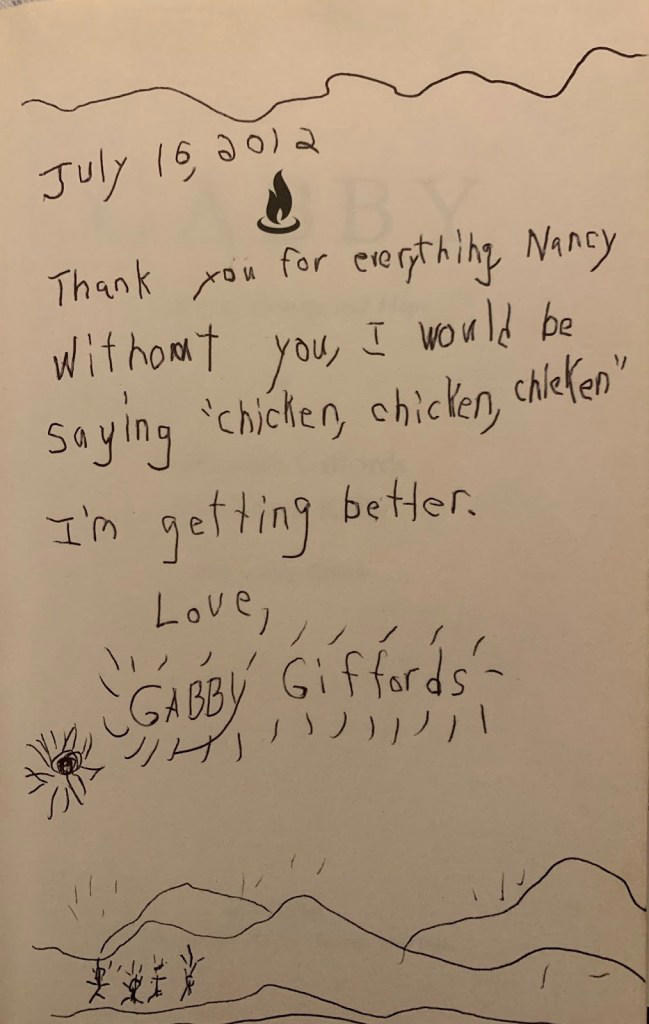 July 16, 2012
Thank you for everything Nancy
Without you, I would be
saying "chicken, chicken, chicken"
I'm getting better.
Love,
GABBY Giffords
GABBY